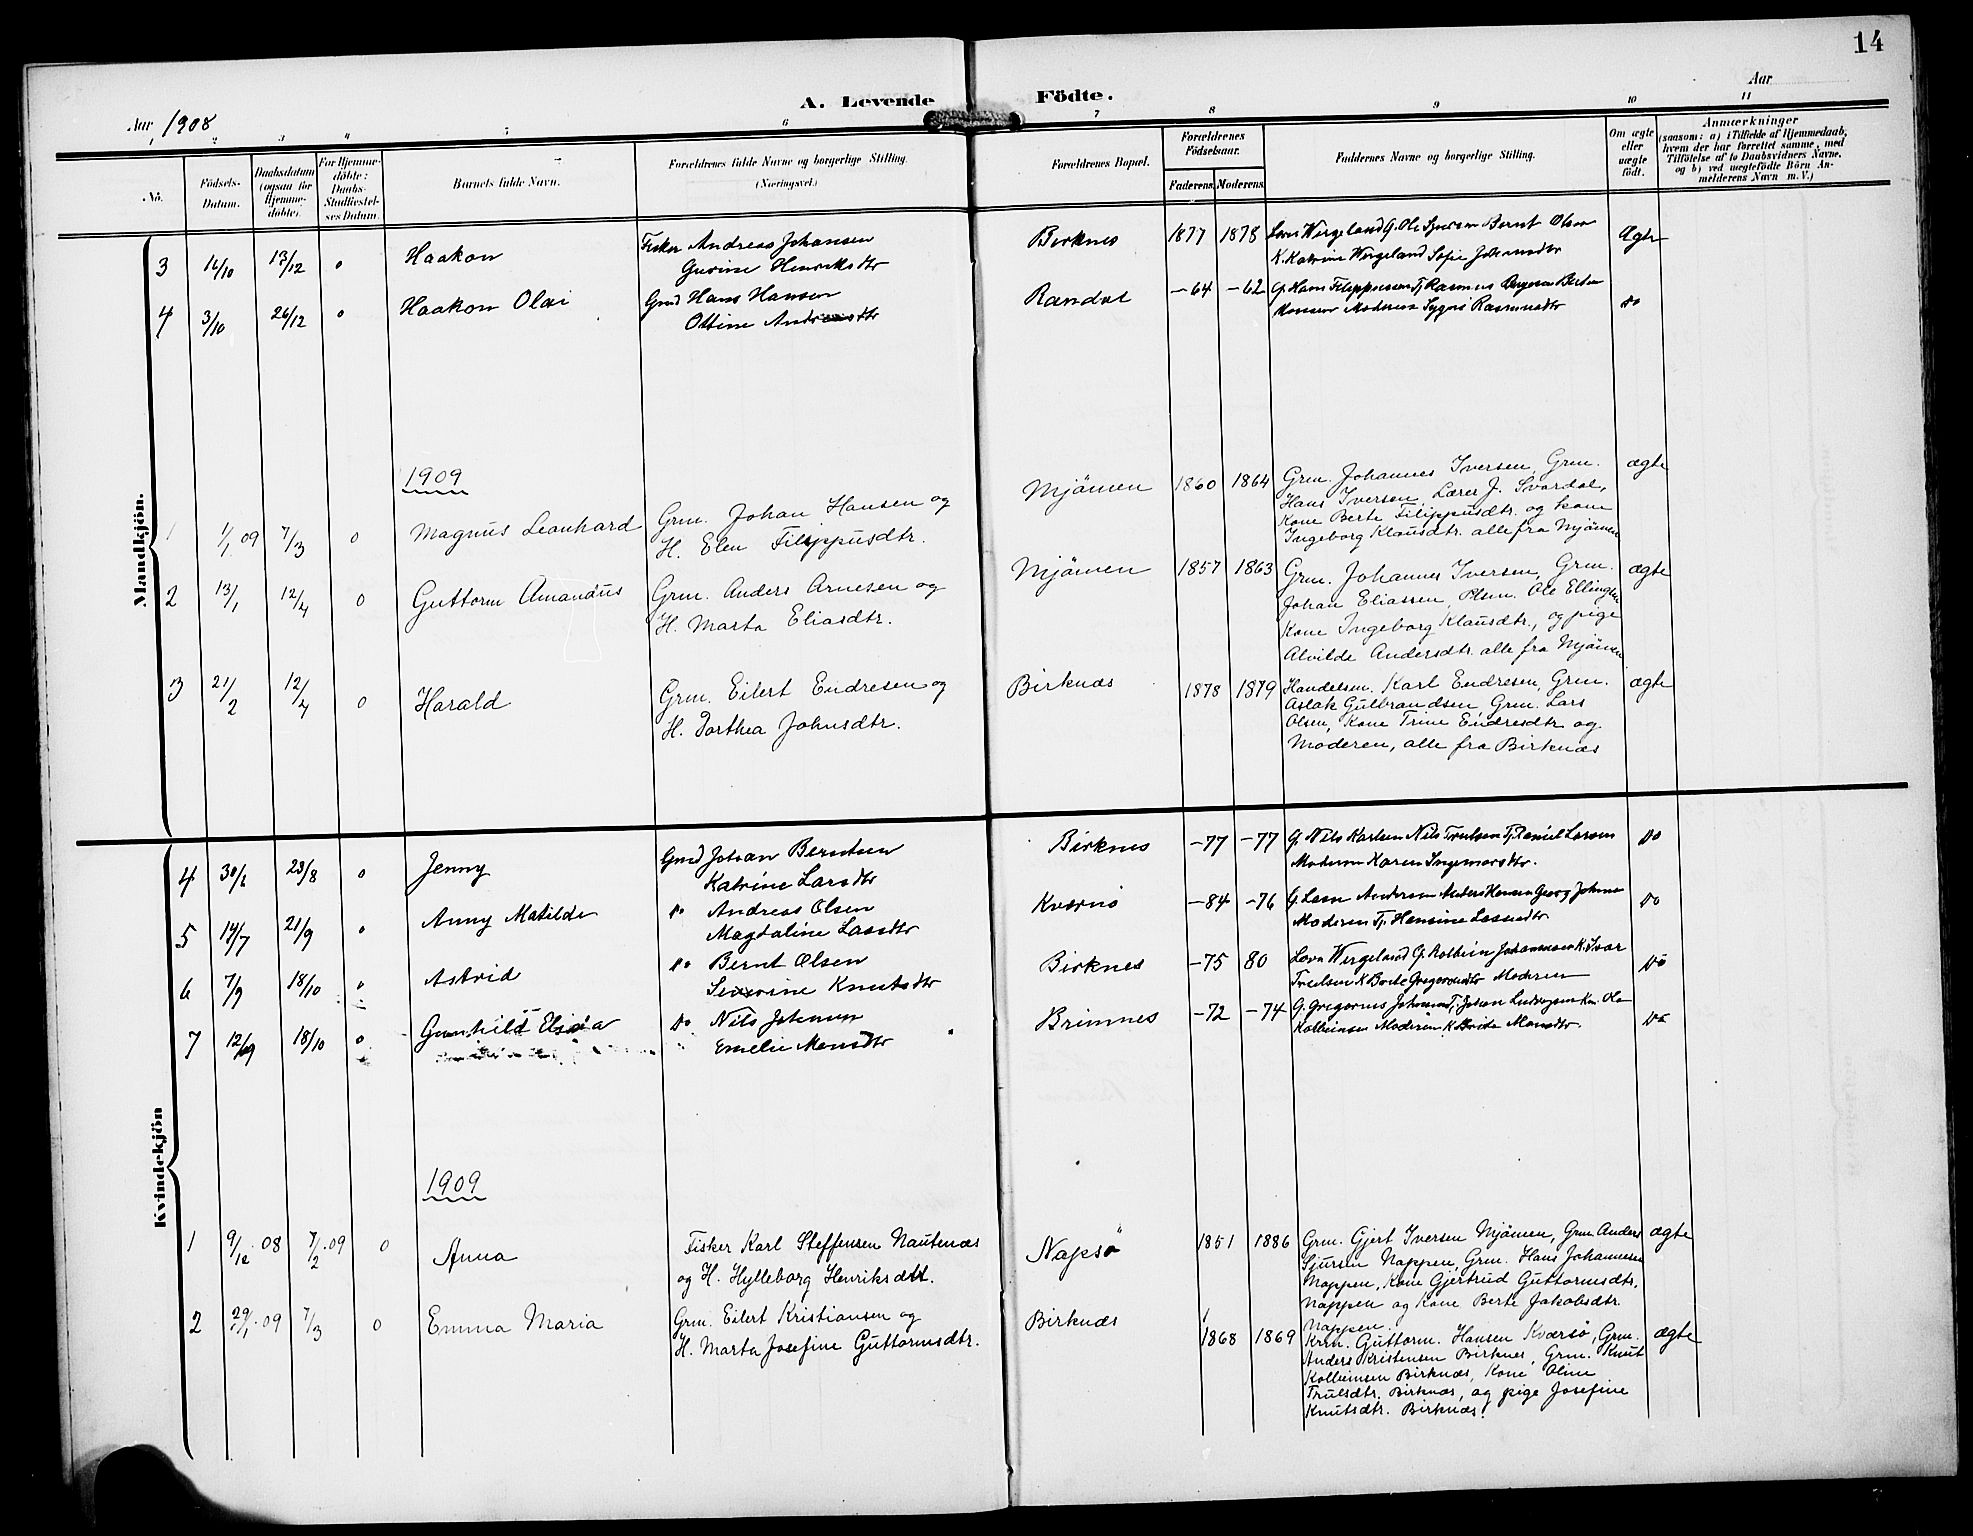 14
A. Levende Födte.
Aar 1908
Aar
1 2 3 4 5 6 7 8 9 10 11
No.
Födsels-Datum.
Daabsdatum (ogsaa for Hjemmedöbte).
For Hjemmedöbte: Daabs-Stadfæstelses Datum.
Barnets fulde Navn.
Forældrenes fulde Navne og borgerlige Stilling.
(Næringsvei.)
Forældrenes Bopæl.
Forældrenes Födselsaar.
Faderens. Moderens.
Faddernes Navne og borgerlige Stilling.
Om ægte eller uægte födt.
Anmærkninger
(saasom: a) i Tilfælde af Hjemmedaab, hvem der har forrettet samme, med Tilföielse af to Daabsvidners Navne, og b) ved uægtefödte Börn Anmelderens Navn m. V.)
Mandkjön.
3 16/10 13/12 0 Haakon Fisker Andreas Johansen Birknes 1877 1878 Wergeland G. Ole Bernt Olsen Ægte
Gurine Henriksdtr K. Katrine Wergeland Sofie Johansdtr
4 3/10 26/12 0 Haakon Olai Gmd Hans Hansen -64 -62 G. Hans Filippussen Tj Rasmus do
Ottine Moderen Rasmusdtr
1909
1 1/1 09 7/3 0 Magnus Leonhard Grm. Johan Hansen og Mjömen 1860 1864 Grm. Johannes Iversen, Grm. ægte
H. Elen Filippusdtr. Hans Iversen, Lærer J. Svardal,
Kone Berte Filippusdtr. og kone
Ingeborg Klausdtr. alle fra Mjömen
2 13/1 12/4 0 Guttorm Amandus Grm. Anders Arnesen og Mjömen 1857 1863 Grm. Johannes Iversen, Grm. ægte
H. Marta Eliasdtr. Johan Eliassen, Ole Ellingsen
Kone Ingeborg Klausdtr., og pige
Alvilde Andersdtr. alle fra Mjömen
3 21/2 12/4 0 Harald Grm. Eilert Endresen og Birknæs 1878 1879 Handelsm. Karl Endresen, Grm. ægte
H. Dorthea Johnsdtr. Aslak Gulbrandsen, Grm. Lars
Olsen, Kone Trine Endresdtr og
Moderen, alle fra Birknæs
Kvindekjön
4 30/6 23/8 0 Jenny Gmd Johan Berntsen Birknes -77 -77 G. Nils Karlsen Nils Trulsen Tj Daniel Larsen do
Katrine Larsdtr Moderen Karen Ingemarsdtr.
5 14/7 21/9 0 Anny Matilde do Andreas Olsen Kværnö -84 -76 G. Andersen Anders Hansen Georg Johnsen do
Magdaline Moderen Tj. Hansine
6 7/9 18/10 0 Astrid do Bernt Olsen Birknes -75 80 Wergeland G. Kolbein Johannesen K. Ivar do
Severine Knutsdtr Trulsen K Berte Gregoriusdtr Moderen
7 12/9 18/10 0 Gunhild do Nils Johnsen Brimnes -72 -74 G. Gregorius Johnsen Tj. Johan Ludvigsen Ole do
Emelie Monsdtr Kolbeinsen Moderen K. Brita Monsdtr.
1909
1 9/12.08 7/2.09 0 Anna Fisker Karl Steffensen Nautenæs Napsö 1851 1886 Grm. Gjert Iversen Mjömen, Grm. Anders ægte
og H. Hylleborg Henriksdtr. Sjursen Nappen, Grm. Hans Johannesen
Nappen, Kone Gjertrud Guttormsdtr.
Nappen og Kone Berte Jakobsdtr.
Nappen.
2 29/1.09 7/3 0 Emma Maria Grm. Eilert Kristiansen og Birknæs 1868 1869 Krm. Guttorm. Hansen Kværsö, Grm. ægte
H. Marta Josefine Guttormsdtr. Anders Kristensen Birknes, Grm. Knut
Kolbeinsen Birknæs, Kone Oline
Trulsdtr. Birknæs, og pige Josefine
Knutsdtr. Birknæs.